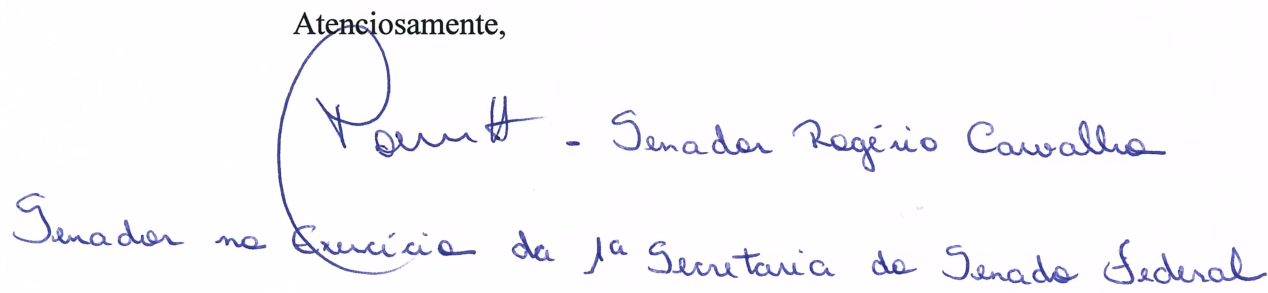 Atenciosamente,
- Senador Rogério Carvalho
Senador no Exercício da 1ª Secretaria do Senado Federal